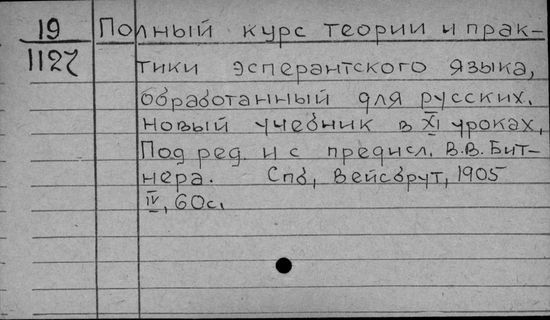 19
1127
Полный курс теории и прак-
тики эсперантского языка,
обработанный для русских.
Новый учебник в XI уроках,
Под ред. и с предисл. В.В. Бит-
нера. Спб, Вейсбрут, 1905
IV, 60 с.